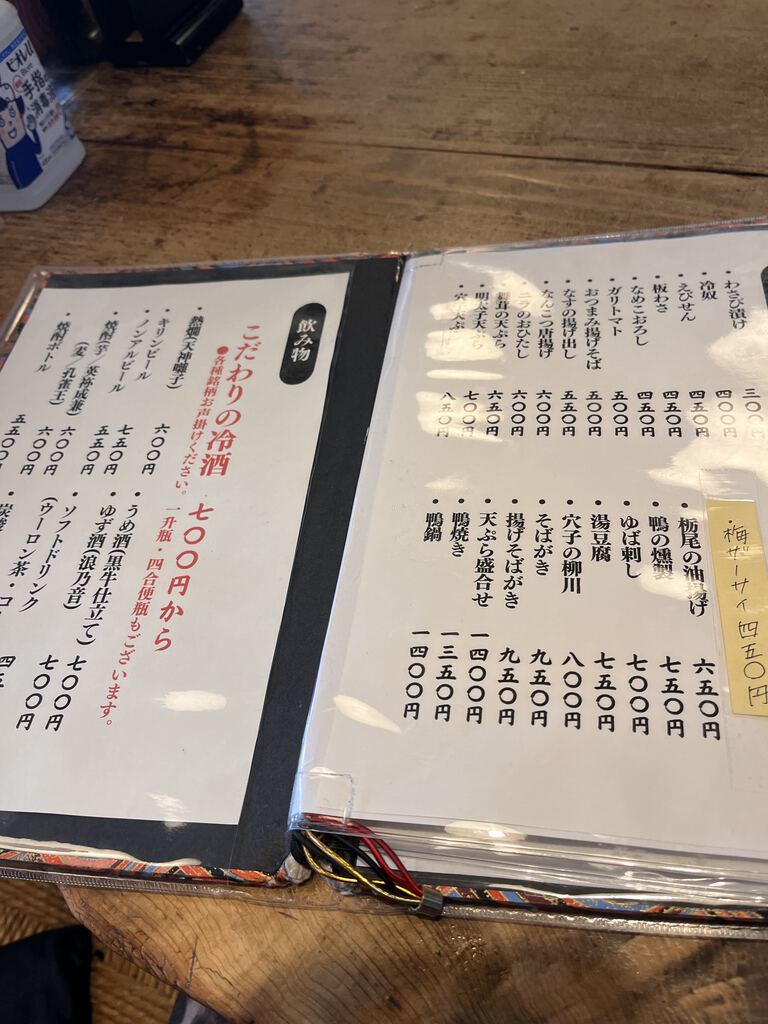 わさび漬け 三〇〇円
冷奴 四〇〇円
えびせん 四五〇円
板わさ 四五〇円
なめこおろし 四五〇円
ガリトマト 五〇〇円
おつまみ揚げそば 五〇〇円
なすの揚げ出し 五五〇円
なんこつ唐揚げ 六〇〇円
のおひたし 六〇〇円
茸の天ぷら 六五〇円
明太子天ぷら 七〇〇円
穴子天ぷら 八五〇円
梅ザーサイ 四五〇円
栃尾の油揚げ 六五〇円
鴨の燻製 七五〇円
ゆば刺し 七〇〇円
湯豆腐 七五〇円
穴子の柳川 八〇〇円
そばがき 九五〇円
揚げそばがき 九五〇円
天ぷら盛合せ 一四〇〇円
鴨焼き 一三五〇円
鴨鍋 一四〇〇円
飲み物
こだわりの冷酒 七〇〇円から
●各種銘柄お声掛けください。一升瓶・四合便瓶もございます。
熱燗(天神囃子) 六〇〇円
キリンビール 七五〇円
ノンアルビール 五五〇円
焼酎(芋/英祢成兼) 六〇〇円
(麦/孔雀王) 六〇〇円
焼酎ボトル 五五〇〇円
うめ酒(黒牛仕立て) 七〇〇円
ゆず酒(浪乃音) 七〇〇円
ソフトドリンク
(ウーロン茶・コ
ビオレu
手指の
消毒液